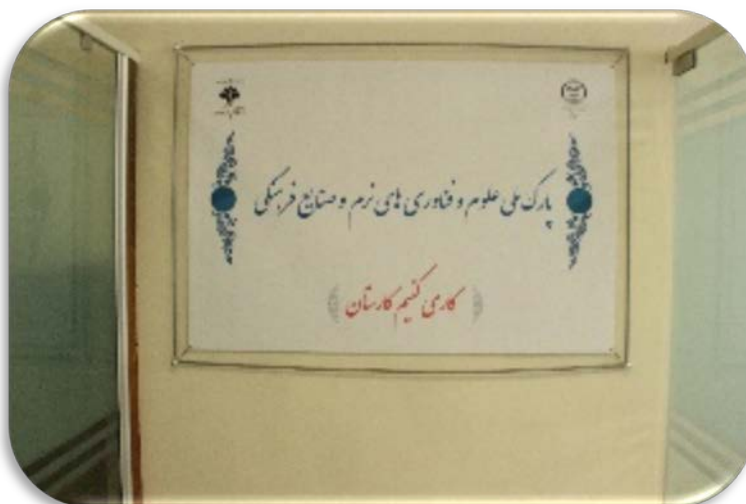 پارک ملی علوم و فناوری های نرم و صنایع فرهنگی
کاری کنیم کارستان